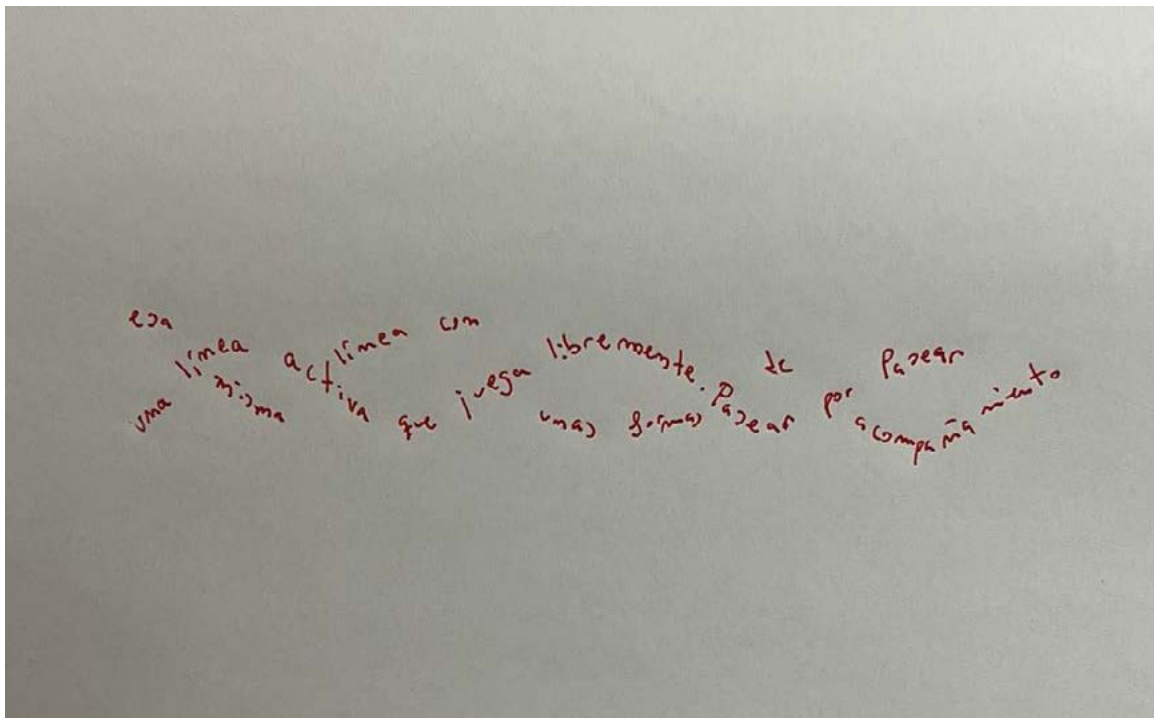 una línea activa que juega libremente. Pasear por Pasear
esa misma línea con unas formas de acompañamiento